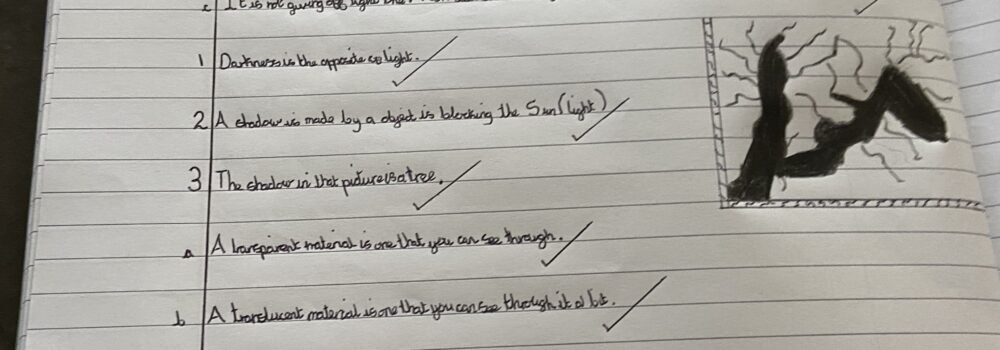 c It is not giving off light
1 Darkness is the opposite to light.
2 A shadow is made by a object is blocking the Sun (light)
3 The shadow in that picture is a tree.
a A transparent material is one that you can see through.
b A translucent material is one that you can see through it a bit.